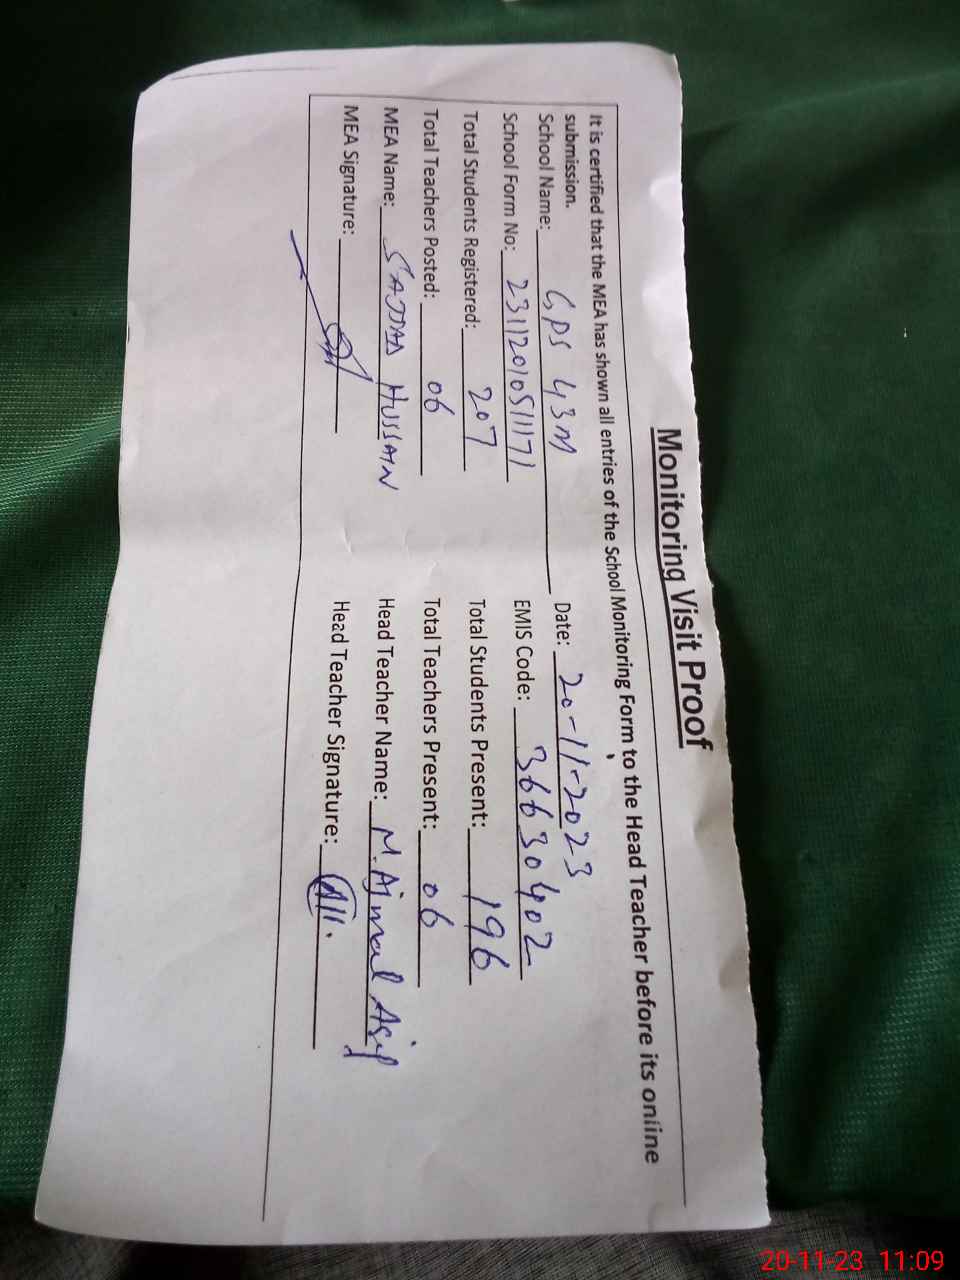 Monitoring Visit Proof
It is certified that the MEA has shown all entries of the School Monitoring Form to the Head Teacher before its online
submission.
School Name: GPS 43M Date: 20-11-2023
School Form No: 23112010511171 EMIS Code: 36630402
Total Students Registered: 207 Total Students Present: 196
Total Teachers Posted: 06 Total Teachers Present: 06
MEA Name: SAJJAD HUSSAIN Head Teacher Name: M. Ajmal Asif
MEA Signature: Head Teacher Signature:
20-11-23 11:09